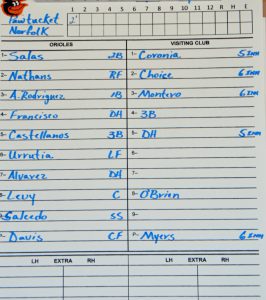 Pawtucket 1 2 3 4 5 6 7 8 9 10 11 12 13 14 R H E
Norfolk 2'
ORIOLES VISITING CLUB
1- Salas 2B 1- Coronia 5 INN
2- Nathans RF 2- Choice 6 INN
3- A. Rodriguez 1B 3- Montero 6 INN
4- Francisco DH 4- 3B
5- Castellanos 3B 5- DH 5 INN
6- Urrutia LF 6-
7- Alvarez DH 7-
8- Levy C 8- O'Brien
9- Salcedo SS 9-
P- Davis CF P- Myers 6 INN
LH EXTRA RH LH EXTRA RH